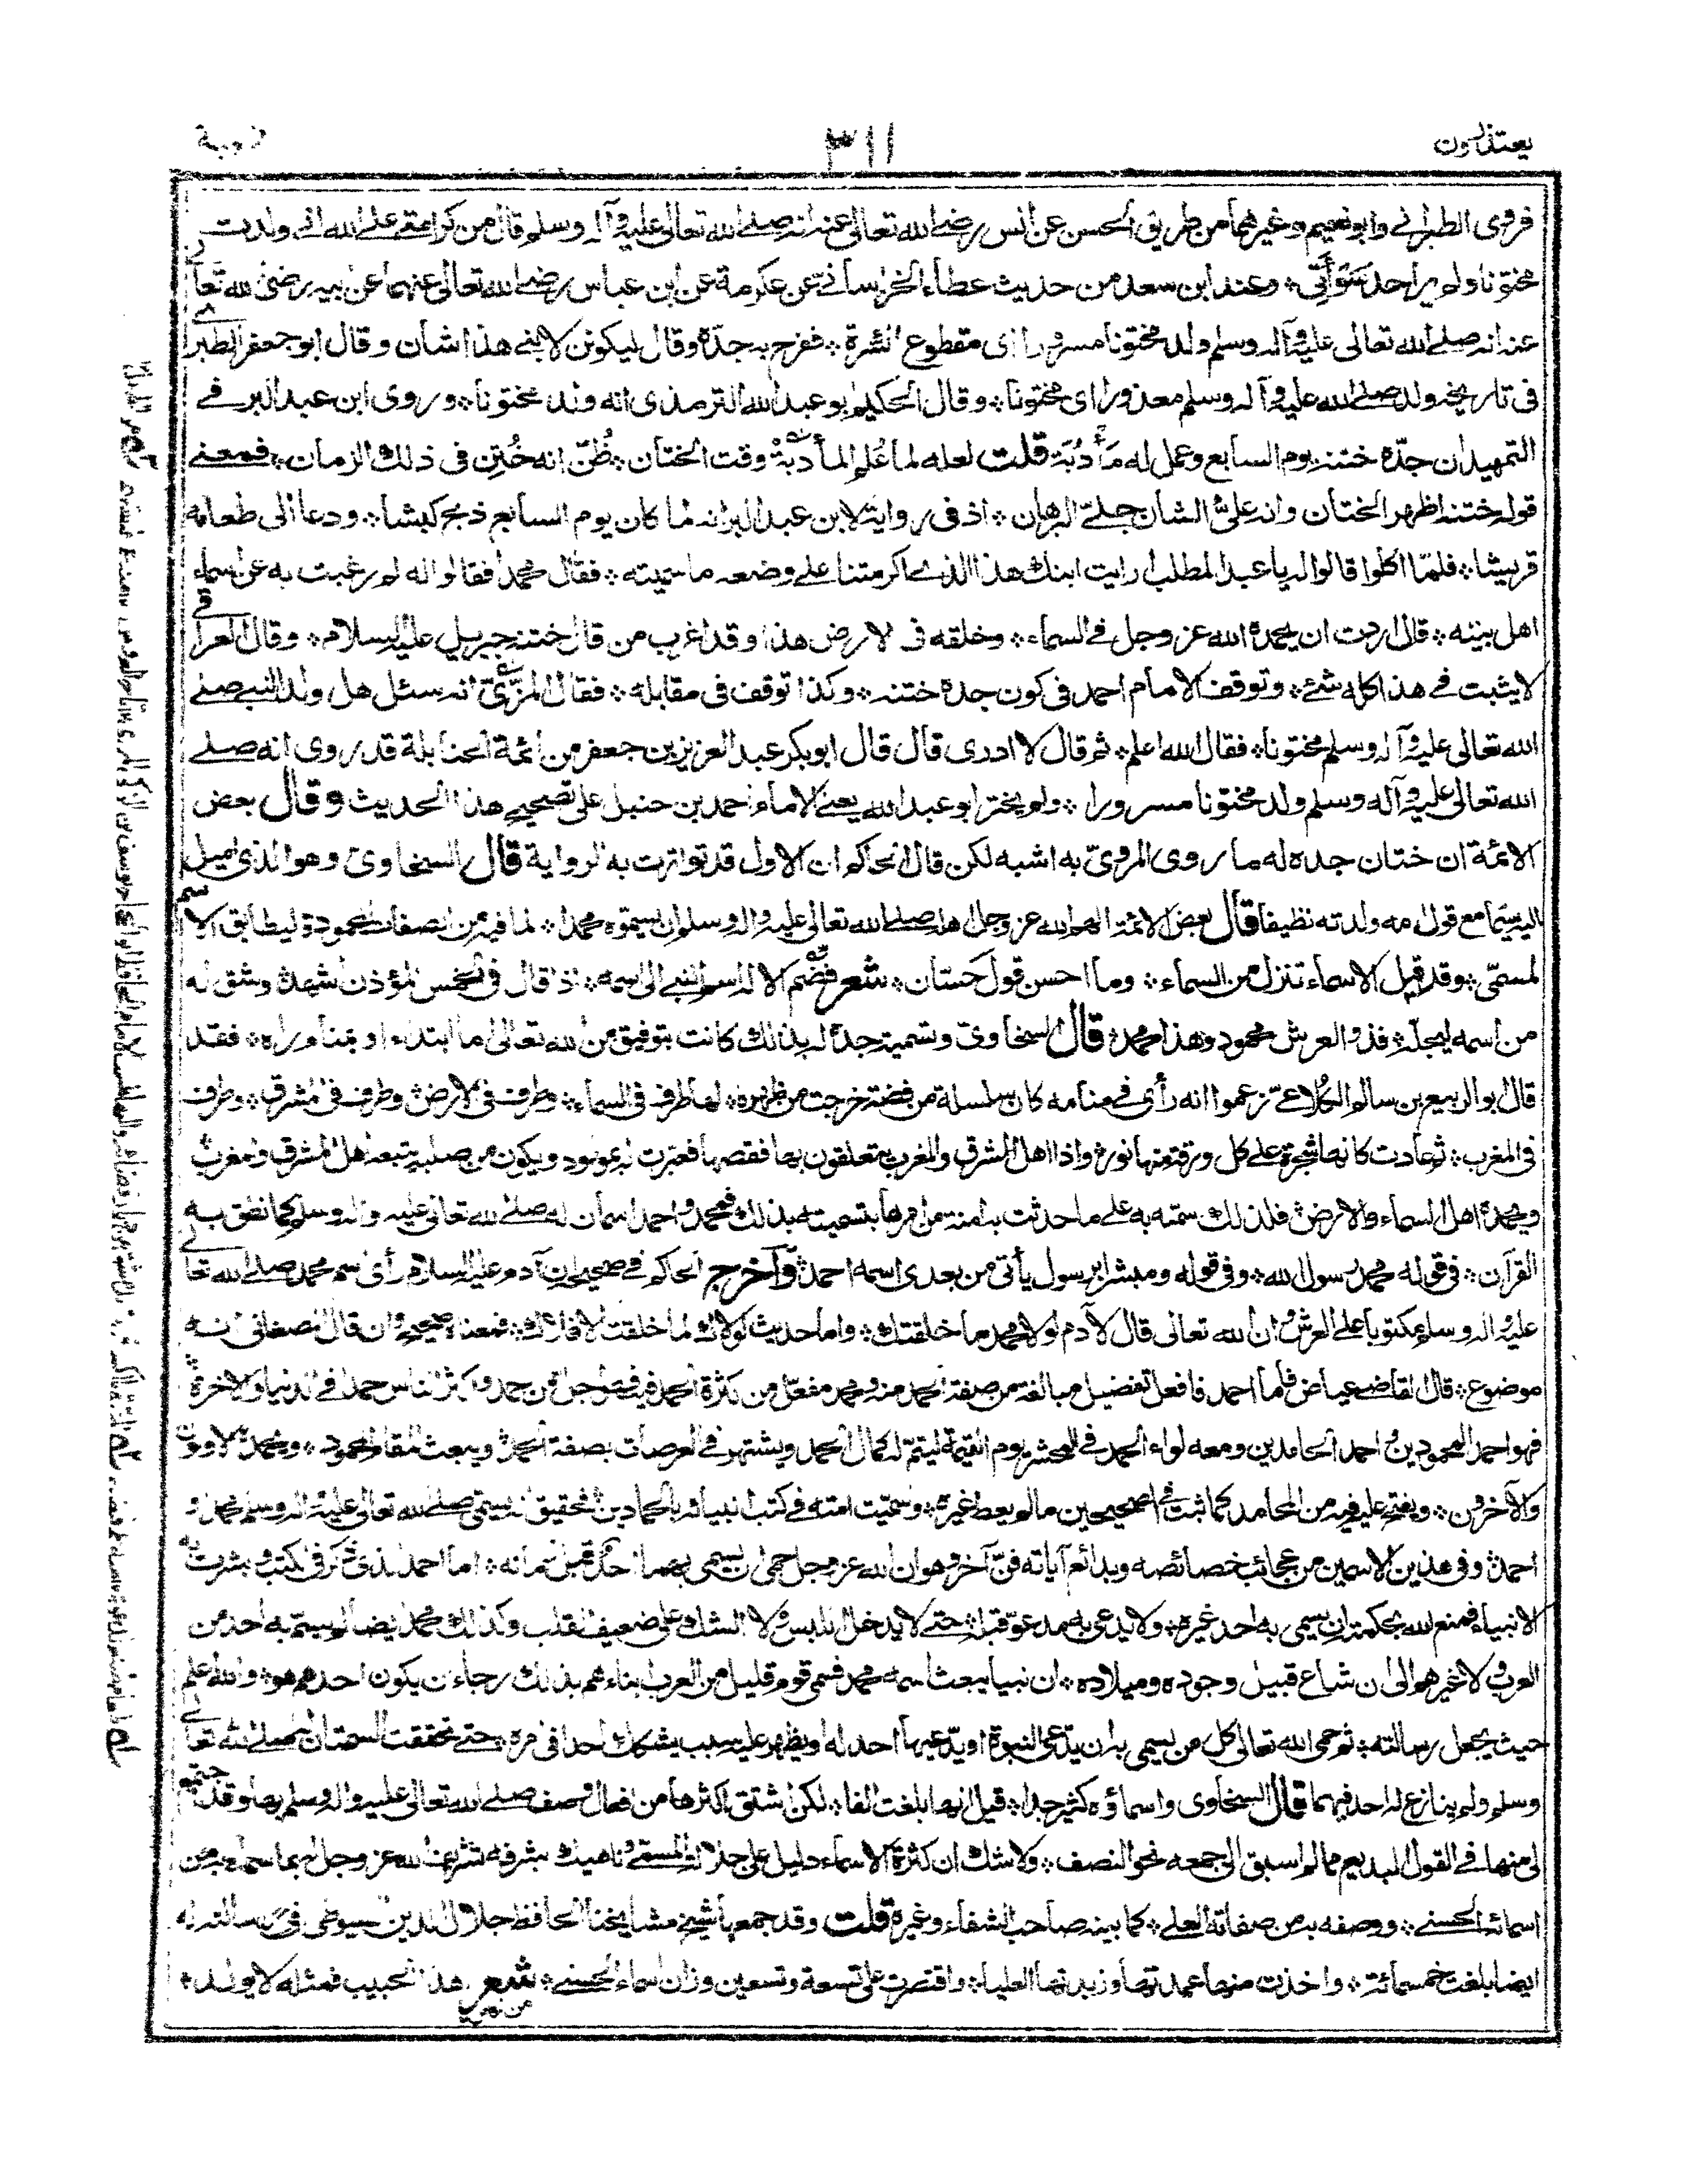 يعتذرون
٣١١
فروى الطبراني وابو نعيم وغيرهما من طريق الحسن عن انس رضي الله تعالى عنه انه صلى الله تعالى عليه وآله وسلم قال من كرامتي على الله اني ولدت
مختونا ولم ير احد سَوَأتي ٭ وعند ابن سعد من حديث عطاء الخراساني عن عكرمة عن ابن عباس رضي الله تعالى عنهما عن ابيه رضي الله تعالى
عنه انه صلى الله تعالى عليه وآله وسلم ولد مختونا مسرورا اى مقطوع السُّرة ٭ ففرح به جدّه وقال ليكونن لابني هذا شان وقال ابو جعفر الطبرى
فى تاريخه ولد صلى الله عليه وآله وسلم معذورا اى مختونا ٭ وقال الحكيم ابو عبد الله الترمذى انه ولد مختونا ٭ وروى ابن عبد البر في
التمهيد ان جدّه ختنه يوم السابع وعمل له مَأدُبَة قلت لعله لما عُلم المأدبة وقت الختان ٭ ظُنّ انه خُتِن فى ذلك الزمان ٭ فمعنى
قوله ختنه اظهر الختان وانه علىّ الشان جلىّ البرهان ٭ اذ فى رواية لابن عبد البر انه لما كان يوم السابع ذبح كبشا ٭ ودعا الى طعامه
قريشا ٭ فلمّا اكلوا قالوا له يا عبد المطلب ارايت ابنك هذا الذى اكرمتنا على وضعه ما سميته ٭ فقال محمدا فقالوا له لم رغبت به عن اسماء
اهل بيته ٭ قال اردت ان يحمده الله عز وجل في السماء ٭ وخلقه فى الارض هذا وقد اغرب من قال ختنه جبريل عليه السلام ٭ وقال العراقي
لا يثبت في هذا كله شئ ٭ وتوقف الامام احمد فى كون جده ختنه ٭ وكذا توقف فى مقابله ٭ فقال المرّوذىّ انه سئل هل ولد النبي صلى
الله تعالى عليه وآله وسلم مختونا ٭ فقال الله اعلم ٭ ثم قال لا ادرى قال قال ابو بكر عبد العزيز بن جعفر من ائمة الحنابلة قد روى انه صلى
الله تعالى عليه وآله وسلم ولد مختونا مسرورا ٭ ولم يجترء ابو عبد الله يعني الامام احمد بن حنبل على تصحيح هذا الحديث وقال بعض
الائمة ان ختان جده له ما روى المروىّ به اشبه لكن قال الحاكم ان الاول قد تواترت به الرواية قال السخاوى وهو الذى اميل
اليه سيّما مع قول امه ولدته نظيفا قال بعض الائمة الهم الله عز وجل اهله صلى الله تعالى عليه وآله وسلم ان يسمّوه محمدا ٭ لما فيه من الصفات المحمودة ليطابق الاسم
المسمّى ٭ وقد قيل الاسماء تنزل من السماء ٭ وما احسن قول حَسّان ٭ شعر فضم الاله اسم النبي الى اسمه ٭ اذ قال فى الخمس المؤذن اشهد ٭ وشق له
من اسمه ليجلّه ٭ فذو العرش محمود وهذا محمد ٭ قال السخاوى وتسمية جده له بذلك كانت بتوفيق من الله تعالى اما ابتداء او بمنام راه ٭ فقد
قال ابو الربيع بن سالم الكُلاعى زعموا انه رأى في منامه كان سلسلة من فضة خرجت من ظهره ٭ لها طرف فى السماء ٭ وطرف في الارض ٭ وطرف فى المشرق ٭ وطرف
فى المغرب ٭ ثم عادت كانها شجرة على كل ورقة منها نور ٭ واذا اهل المشرق والمغرب يتعلقون بها فقصها فعبّرت له بمولود ويكون من صلبه يتبعه اهل المشرق والمغرب ٭
ويحمده اهل السماء والارض ٭ فلذلك سمته به على ما حدثت به امنة من امرها بتسميته بذلك ٭ فمحمد واحمد اسمان له صلى الله تعالى عليه وآله وسلم كما نطق به
القرآن ٭ فى قوله محمد رسول الله ٭ وفى قوله ومبشرا برسول يأتى من بعدى اسمه احمد ٭ وأخرج الحاكم فى صحيحه ان آدم عليه السلام رأى اسم محمد صلى الله تعالى
عليه وآله وسلم مكتوبا على العرش ٭ وان الله تعالى قال لآدم لولا محمد ما خلقتك ٭ واما حديث لولاك لما خلقت الافلاك ٭ فمعناه صحيح وان قال الصغانى انه
موضوع ٭ قال القاضي عياض فاما احمد فافعل تفضيل مبالغة من صفة الحمد منه ومحمد مفعّل من كثرة الحمد فيه فهو اجل من حمد واكثر الناس حمدا فى الدنيا والاخرة ٭
فهو احمد المحمودين واحمد الحامدين ومعه لواء الحمد فى المحشر يوم القيمة ليتم له كمال الحمد ويشتهر فى العرصات بصفة الحمد ويبعث المقام المحمود ٭ ويحمده الاولون
والآخرون ٭ ويفتح عليه فيه من المحامد كما ثبت فى الصحيحين ما لم يعط غيره ٭ وسمّيت امته فى كتب انبيائه بالحمادين ٭ فحقيق ان يسمّى صلى الله تعالى عليه وآله وسلم محمدا و
احمد ٭ وفى هذين الاسمين من عجائب خصائصه وبدائع آياته فنّ آخر وهو ان الله عز وجل حمى ان يسمى بهما احد قبل زمانه ٭ اما احمد الذى ذكر فى الكتب وبشرت به
الانبياء فمنع الله بحكمته ان يسمى به احد غيره ٭ ولا يدعى به مدعوّ قبله ٭ حتى لا يدخل اللبس ولا الشك على ضعيف القلب وكذلك محمد ايضا لم يسمّ به احد من
العرب ولا غيرهم الى ان شاع قبيل وجوده وميلاده ٭ ان نبيا يبعث اسمه محمد فسمى قوم قليل من العرب ابناءهم بذلك رجاء ان يكون احدهم هو ٭ والله اعلم
حيث يجعل رسالته ٭ ثم حمى الله تعالى كل من يسمى به ان يدّعى النبوة او يدّعيها احد له او يظهر عليه سبب يشكك احدا فى امره ٭ حتى تحققت السمتان له صلى الله تعالى
وسلم ولم ينازع له احد فيهما قال السخاوى واسماؤه كثير جدا ٭ قيل انها بلغت الفا ٭ لكن اشتق اكثرها من افعال وصف صلى الله تعالى عليه وآله وسلم بها وقد اجتمع
لى منها في القول البديع مما لم اسبق الى جمعه نحو النصف ٭ ولا شك ان كثرة الاسماء دليل على جلالة المسمى وناهيك بشرفه تشريف الله عز وجل له بما سماه به من
اسمائه الحسنى ٭ ووصفه به من صفاته العلى ٭ كما بينه صاحب الشفاء وغيره قلت وقد جمعها شيخ مشايخنا الحافظ جلال الدين السيوطى فى رسالة له
ايضا بلغت خمسمائة ٭ واخذت منها عمدتها وزبدتها العليا ٭ واقتصرت على تسعة وتسعين وزان اسماء الحسنى ٭ شعر هذا الحبيب فمثله لا يولد ٭